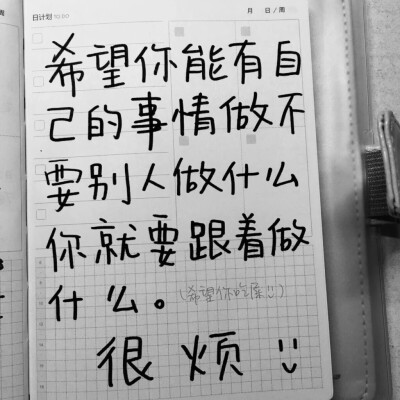 日计划 TO DAY
月 日/周
希望你能有自
己的事情做不
要别人做什么
你就要跟着做
什么。(希望你吃屎!!)
很烦